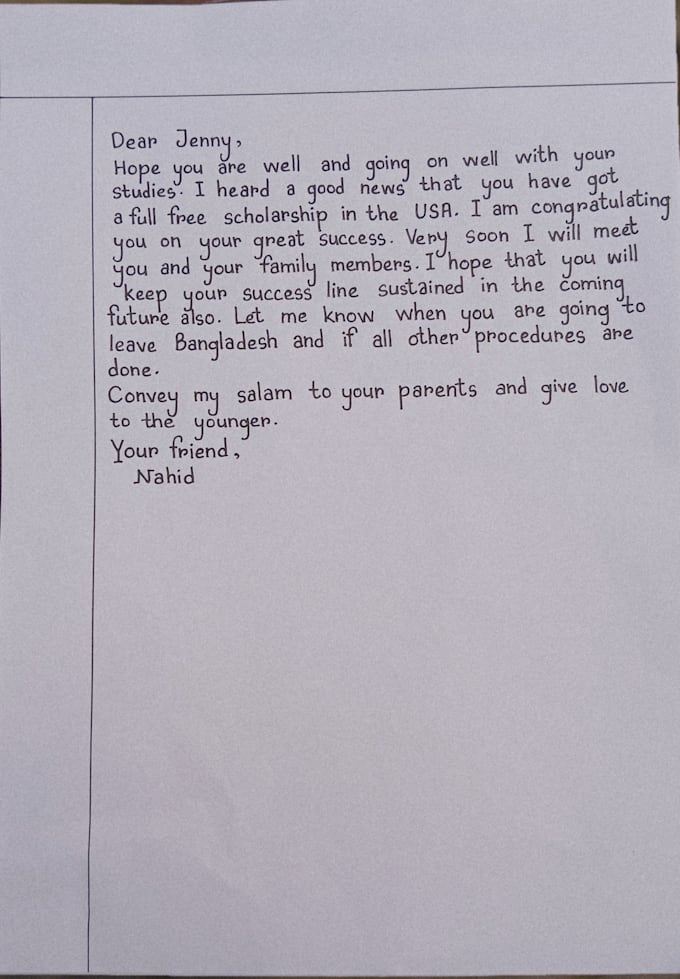 Dear Jenny,
Hope you are well and going on well with your
studies. I heard a good news that you have got
a full free scholarship in the USA. I am congratulating
you on your great success. Very soon I will meet
you and your family members. I hope that you will
keep your success line sustained in the coming
future also. Let me know when you are going to
leave Bangladesh and if all other procedures are
done.
Convey my salam to your parents and give love
to the younger.
Your friend,
Nahid